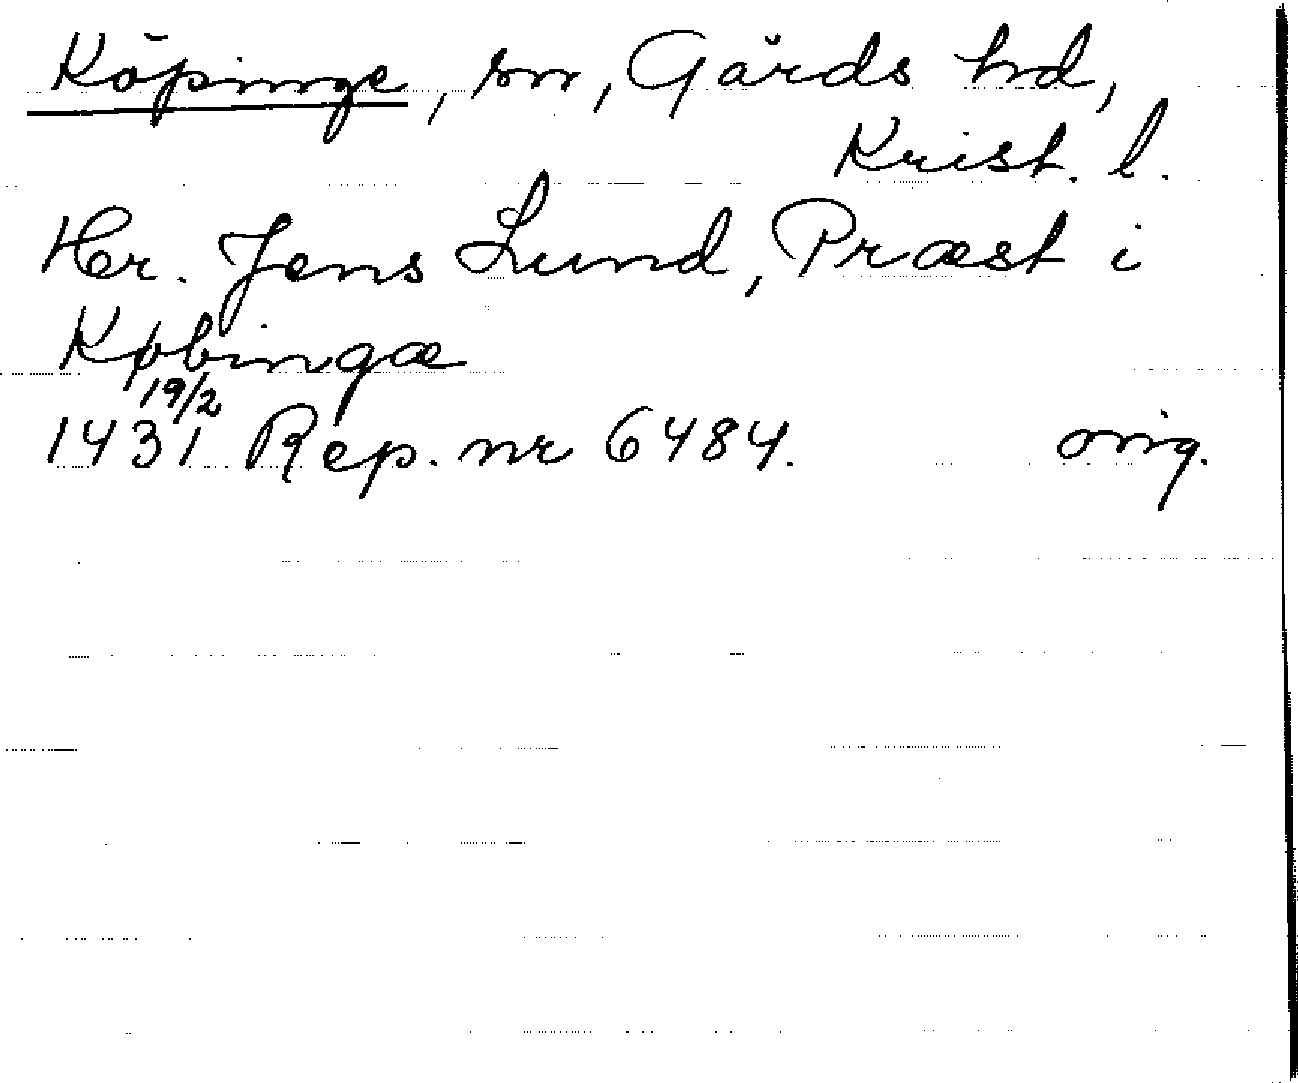 Köpinge, sn, Gärds hd,
Krist. l.
Her. Jens Lund, Præst i
Købingæ
19/2
1431 Rep. nr 6484. orig.